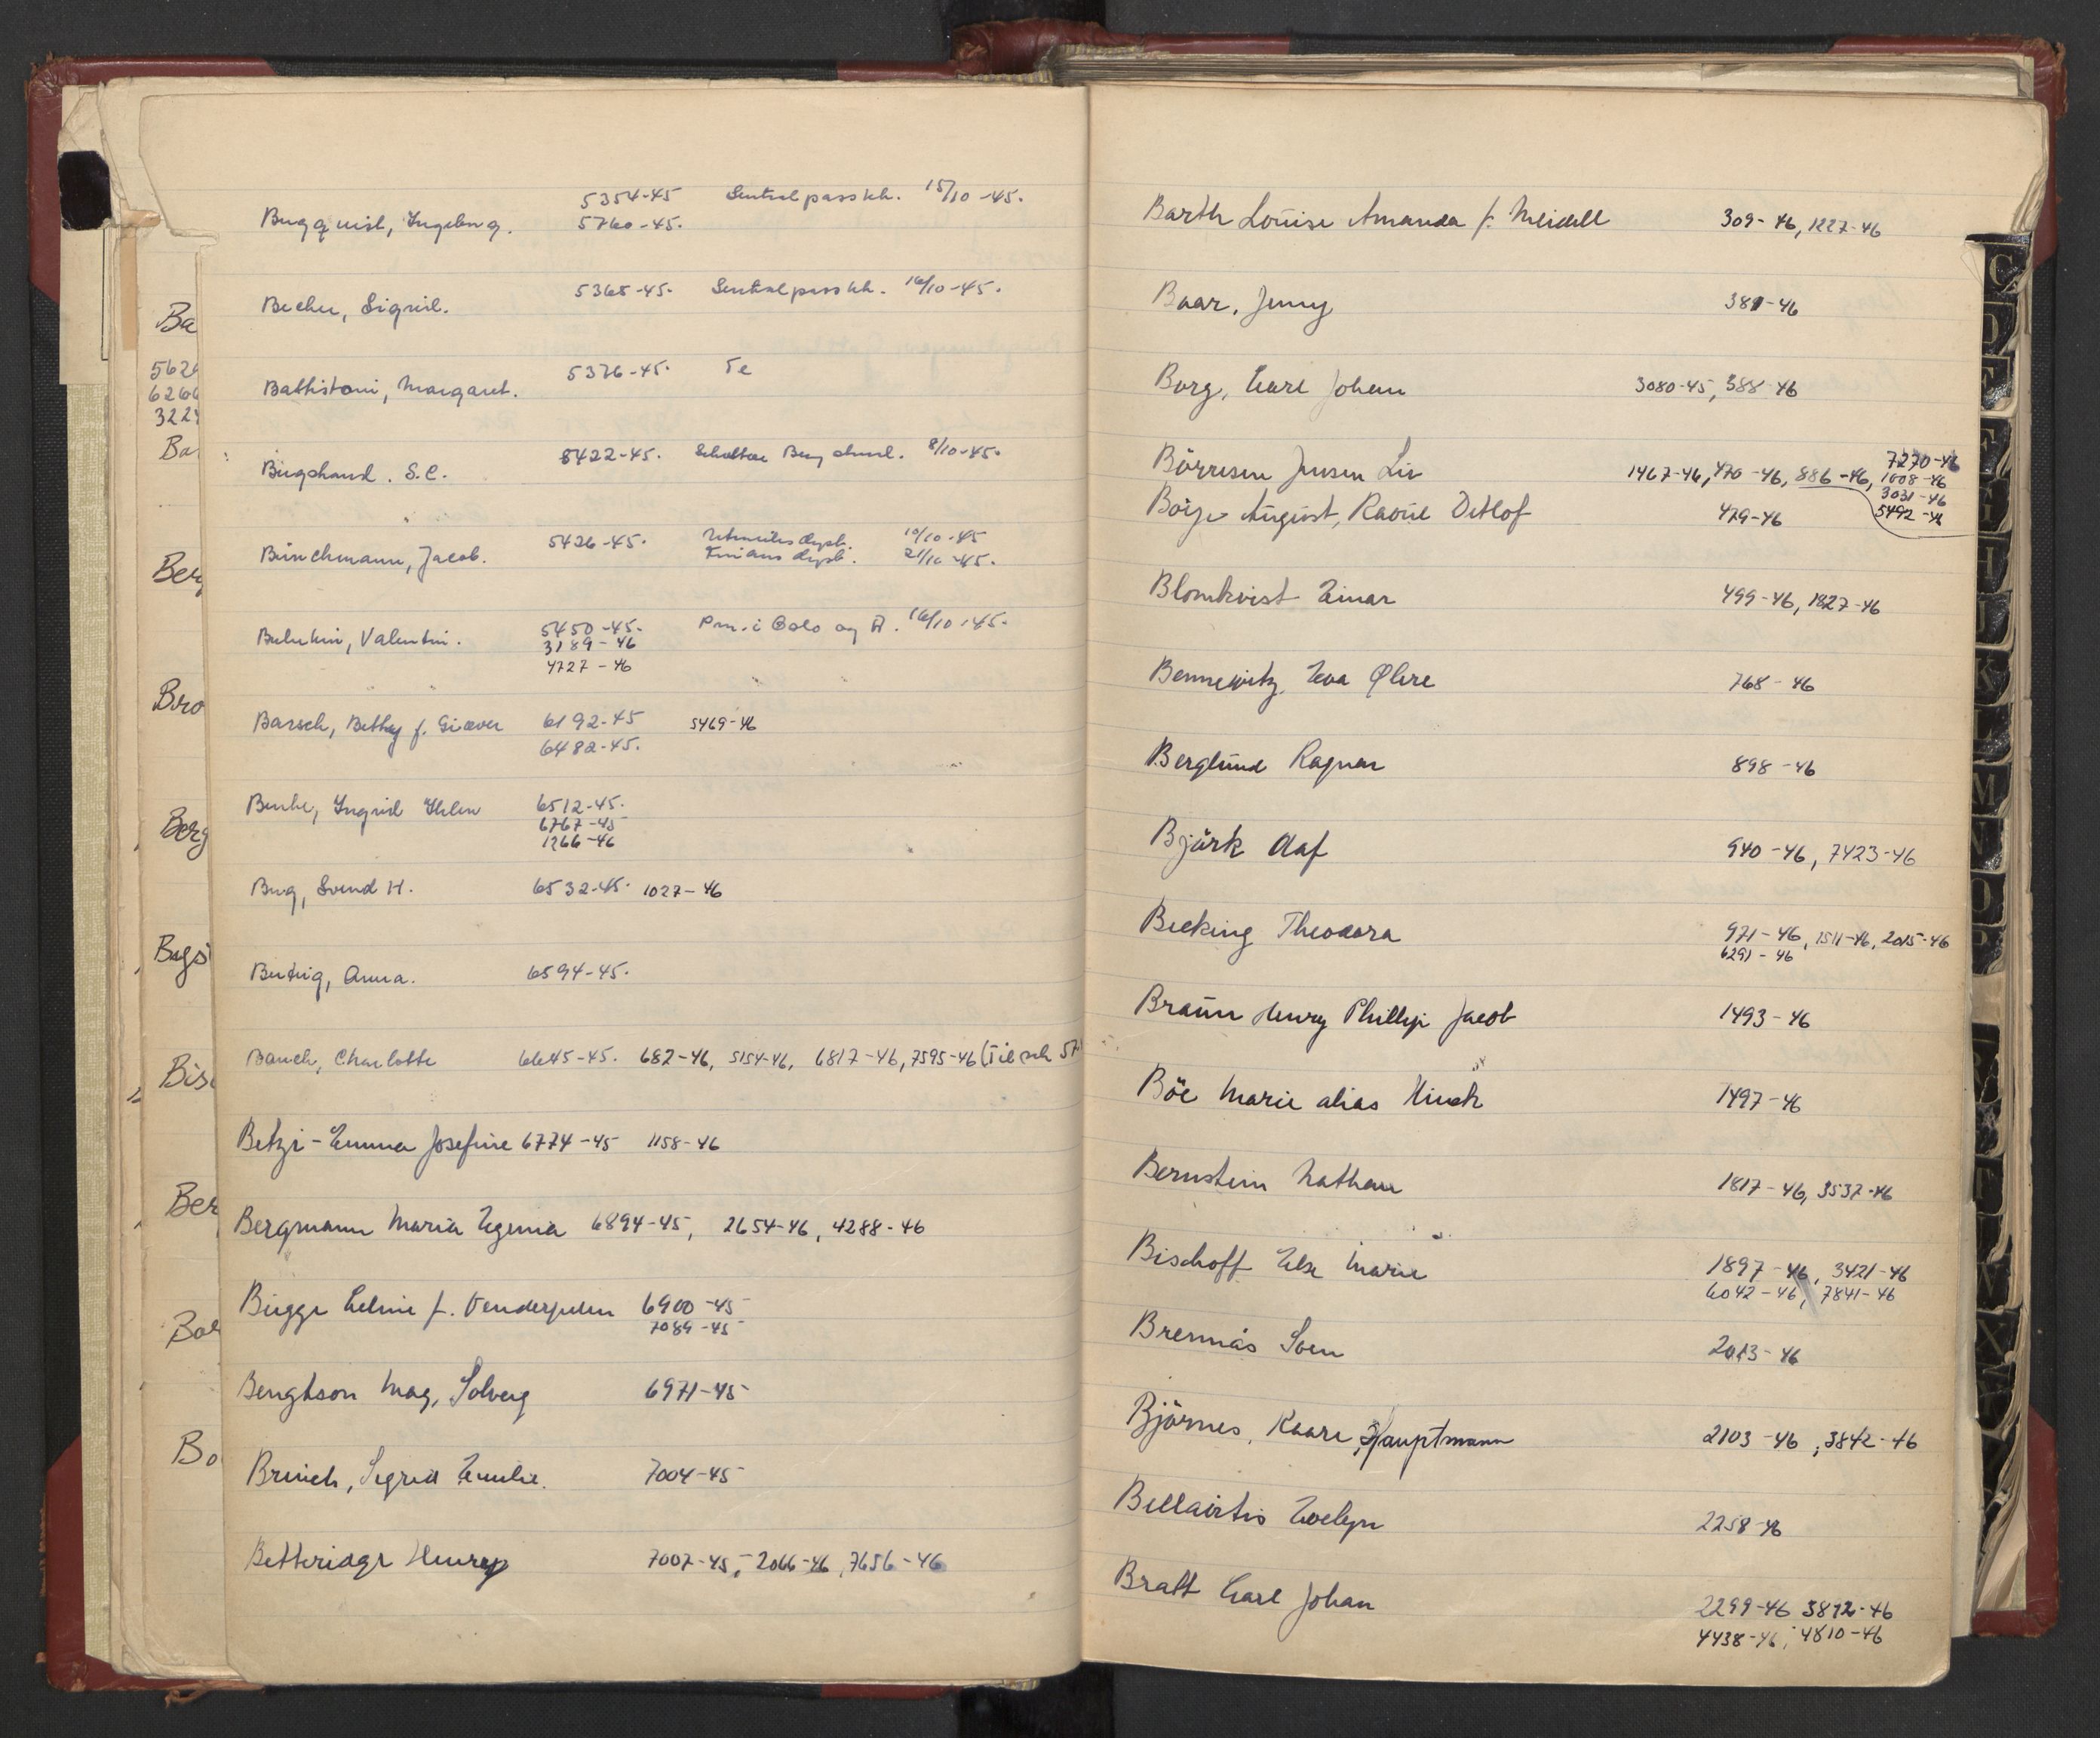 Bergquist, Ingeborg. 5354-45 Sentralpasskt. 15/10-45.
5760-45.
Becher, Sigrid. 5365-45. Sentralpasskt. 16/10-45.
Battistoni, Margaret. 5376-45. Te
Bergstrand. S.C. 5422-45. 8/10-45.
Jacob. 5426-45. 10/10-45
Finansdept. 21/10-45.
Valentin. 5450-45. i Oslo og A. 16/10-45.
3189-46
4727-46
Barsch, Bethy f. Giæver 6192-45 5469-46
6482-45.
Ingrid Ihlen 6512-45.
6767-45
1266-46
Berg, Svend H. 6532-45. 1027-46
Anna. 6594-45.
Bauch, Charlotte 6645-45. 682-46, 5154-46, 6817-46, 7595-46
Betzi-Emma Josefine 6774-45 1158-46
Bergmann Maria Egenia 6894-45, 2654-46, 4288-46
Bugge f. 6900-45
7089-45
Bengtson May, Solveig 6971-45
Brinch, Sigrid Emilie. 7004-45
Betteridge Henry 7007-45, 2066-46, 7656-46
Ba
562
626
322
Ba
Berg
Bro
Berg
Bags
Bis
Ber
Bor
Bo
Barth Louise Amanda f. Meidell 309-46, 1227-46
Baar, Jenny 381-46
Borg, Carl Johan 3080-45, 388-46
Börresen Jensen Liv 1467-46, 470-46, 886-46, 7270-46
1008-46
3031-46
5492-46
August, Raoul Detlof 479-46
Blomkvist Einar 499-46, 1827-46
Bennewitz, Eva 768-46
Berglund Ragnar 898-46
Björk Olaf 940-46, 7423-46
Becking Theodora 971-46, 1511-46, 2015-46
6291-46
Braun Henry Phillip Jacob 1493-46
Böe Marie alias 1497-46
Bernstein Nathan 1817-46, 3537-46
Bischoff Else Marie 1897-46, 3421-46
6042-46, 7841-46
Brennås Sven 2013-46
Björnes, Kaare, Hauptmann 2103-46, 3842-46
Bellairtis Evelyn 2258-46
Bratt Carl Johan
2299-46 3872-46
4438-46, 4810-46
C
D
E
F
G
H
I
K
L
M
N
O
P